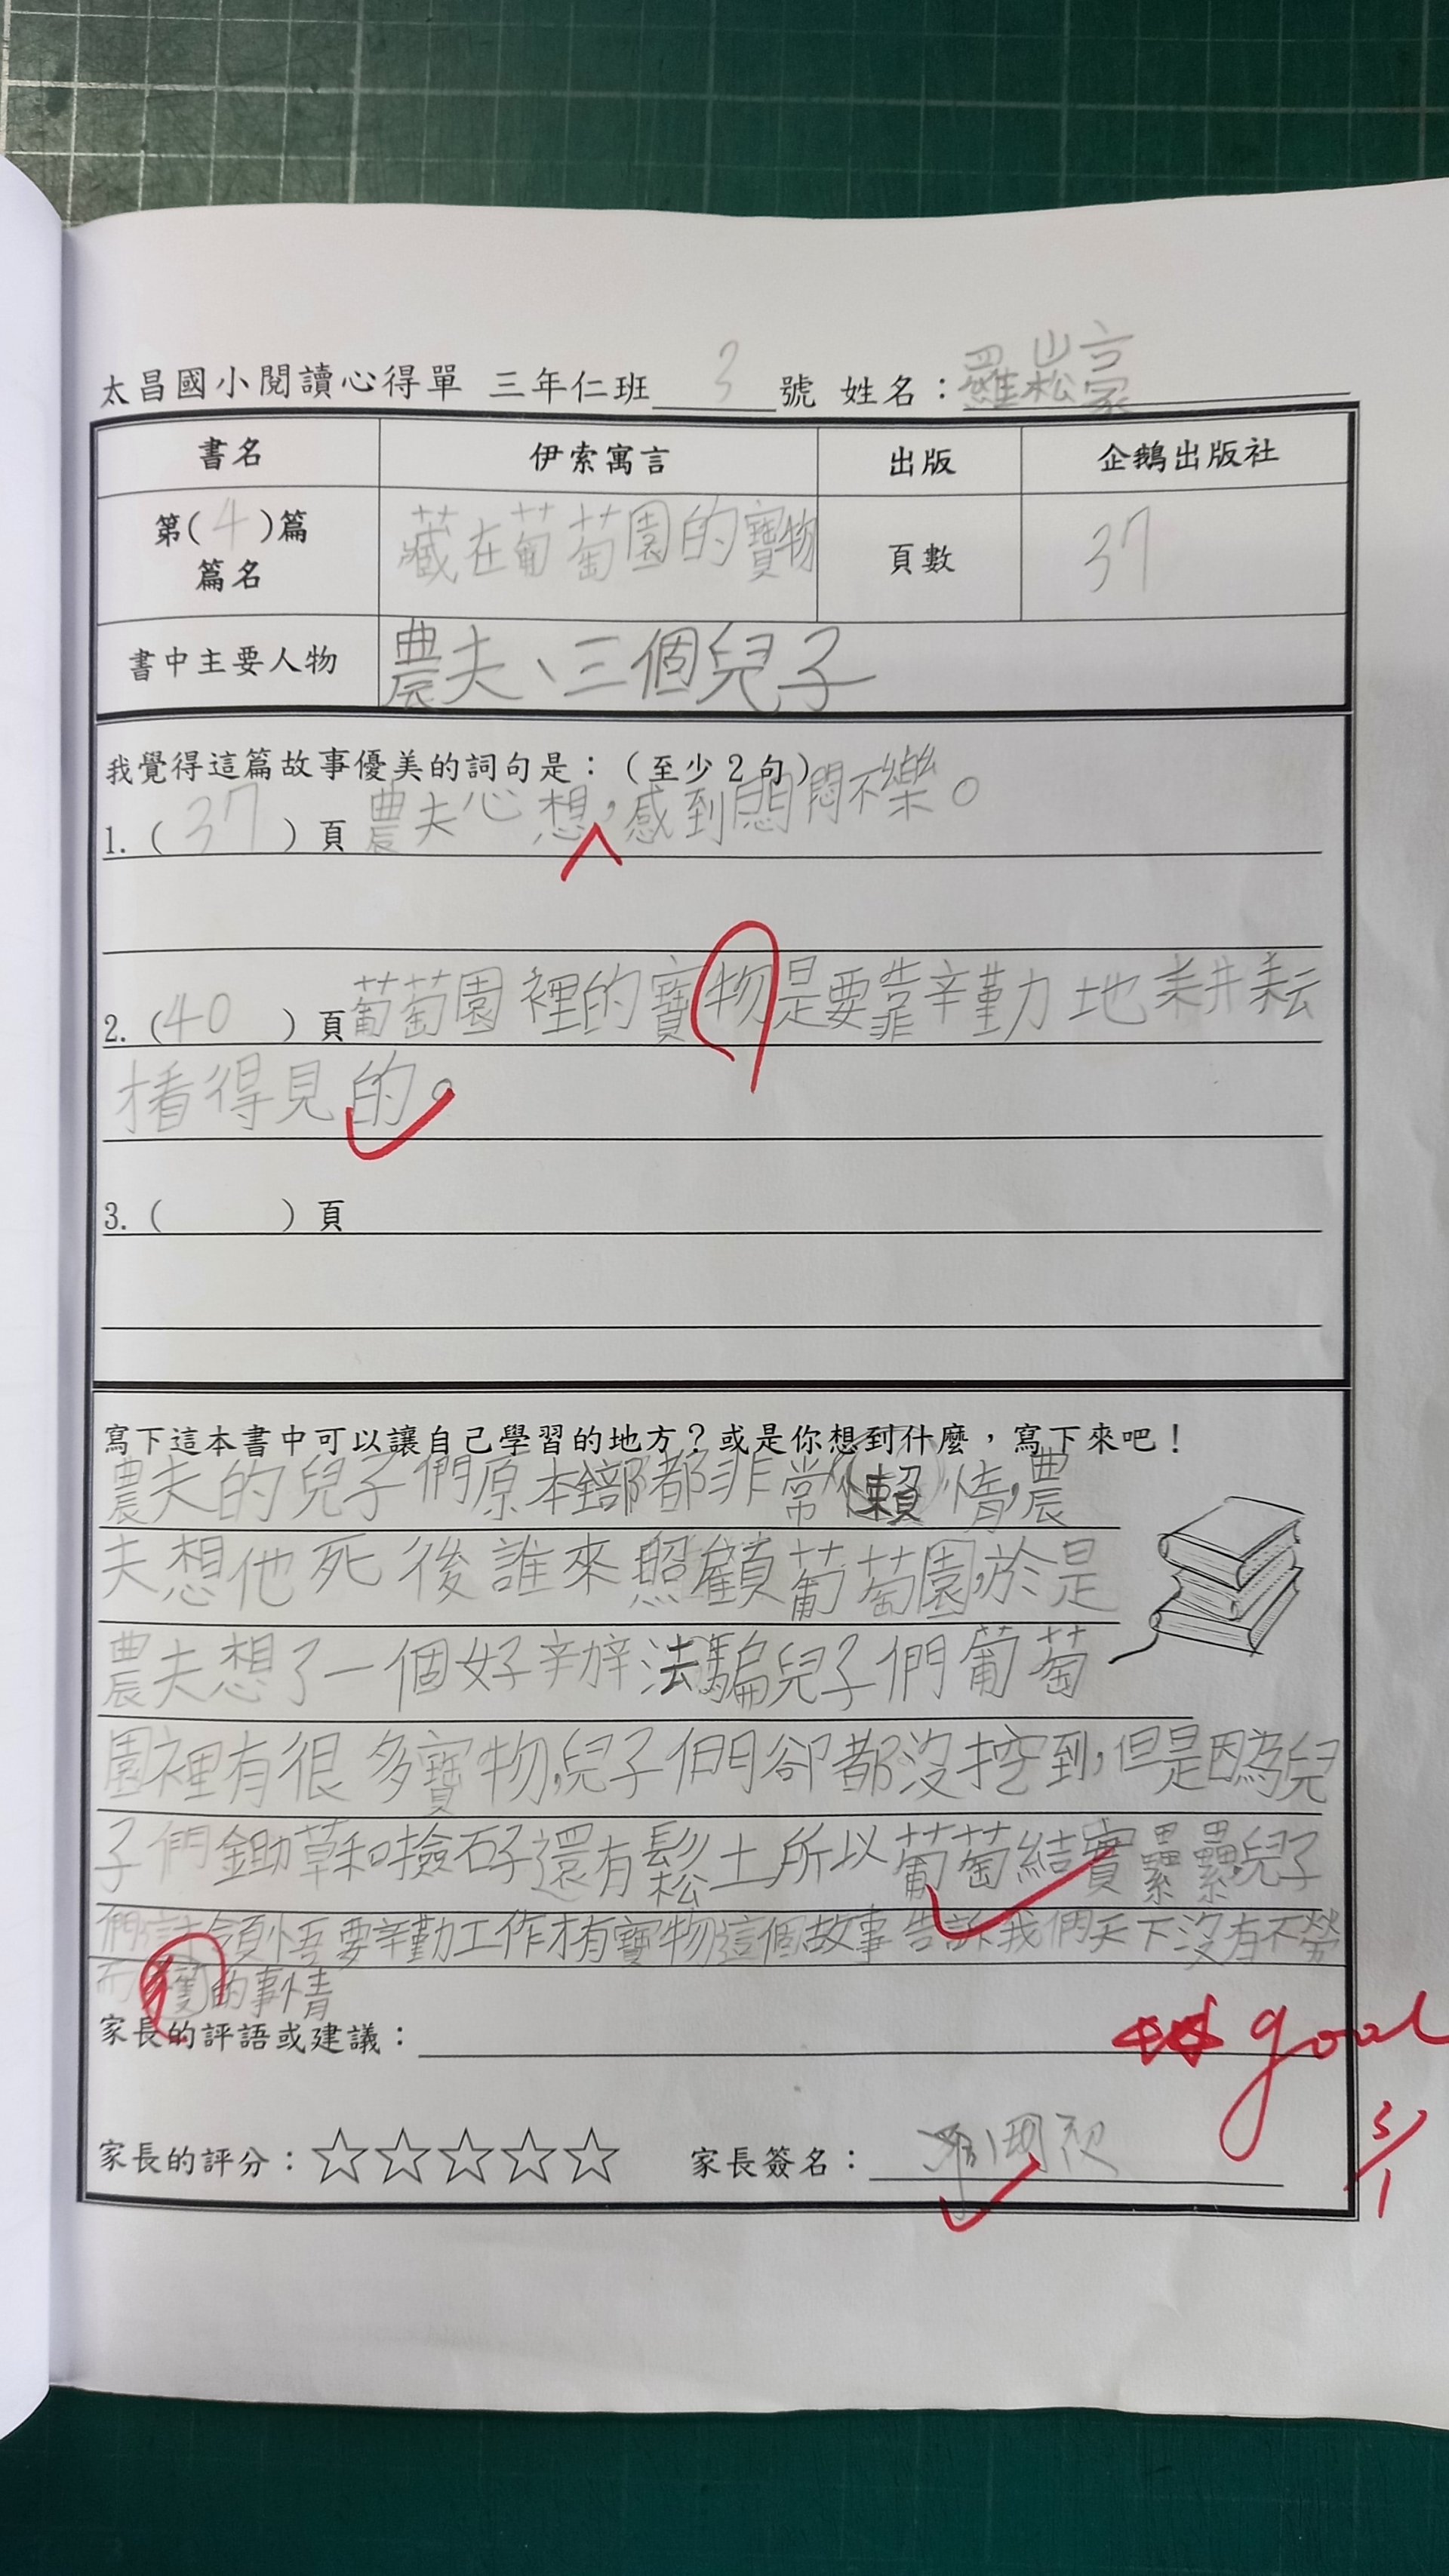 太昌國小閱讀心得單 三年仁班 3 號 姓名：羅崧豪
書名 伊索寓言 出版 企鵝出版社
第(4)篇 篇名 藏在葡萄園的寶物 頁數 37
書中主要人物 農夫、三個兒子
我覺得這篇故事優美的詞句是：（至少2句）
1.（37）頁 農夫心想，感到悶悶不樂。
2.（40）頁 葡萄園裡的寶物是要靠辛勤地耕耘
才看得見的。
3.（ ）頁
寫下這本書中可以讓自己學習的地方？或是你想到什麼，寫下來吧！
農夫的兒子們原本全部都非常懶惰，農
夫想他死後誰來照顧葡萄園，於是
農夫想了一個好辦法騙兒子們葡萄
園裡有很多寶物，兒子們卻都沒挖到，但是因為兒
子們鋤草和撿石子還有鬆土所以葡萄結實纍纍，兒子
們領悟要辛勤工作才有寶物這個故事告訴我們天下沒有不勞
而獲的事情
家長的評語或建議：
good
家長的評分：☆☆☆☆☆ 家長簽名：
3/1